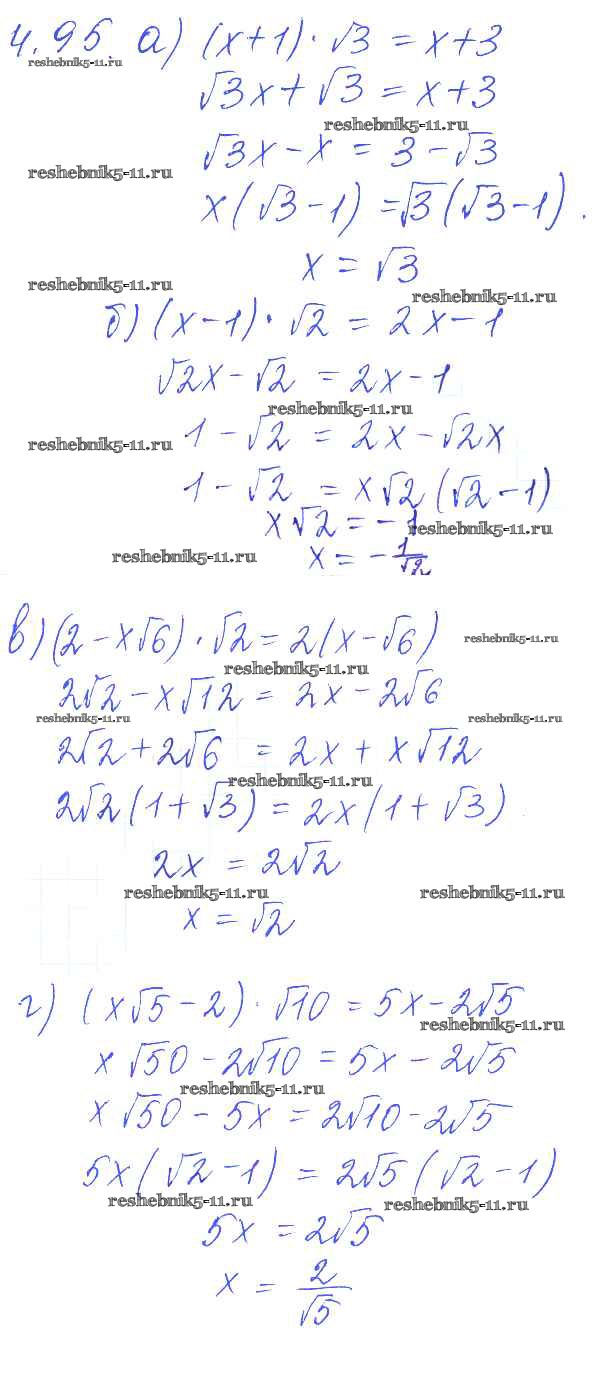 4.95 а) (x+1)·√3 = x+3
reshebnik5-11.ru
√3x + √3 = x+3
reshebnik5-11.ru
√3x - x = 3 - √3
reshebnik5-11.ru
x(√3-1) = √3(√3-1).
x = √3
reshebnik5-11.ru
reshebnik5-11.ru
б) (x-1)·√2 = 2x-1
√2x - √2 = 2x-1
reshebnik5-11.ru
1 - √2 = 2x - √2x
reshebnik5-11.ru
1 - √2 = x√2(√2-1)
x√2 = -1
reshebnik5-11.ru
x = -1/√2
reshebnik5-11.ru
в) (2-x√6)·√2 = 2(x-√6)
reshebnik5-11.ru
reshebnik5-11.ru
2√2 - x√12 = 2x - 2√6
reshebnik5-11.ru
reshebnik5-11.ru
2√2 + 2√6 = 2x + x√12
reshebnik5-11.ru
2√2(1+√3) = 2x(1+√3)
2x = 2√2
reshebnik5-11.ru
reshebnik5-11.ru
x = √2
г) (x√5-2)·√10 = 5x-2√5
reshebnik5-11.ru
x√50 - 2√10 = 5x - 2√5
reshebnik5-11.ru
x√50 - 5x = 2√10 - 2√5
5x(√2-1) = 2√5(√2-1)
reshebnik5-11.ru
reshebnik5-11.ru
5x = 2√5
x = 2/√5